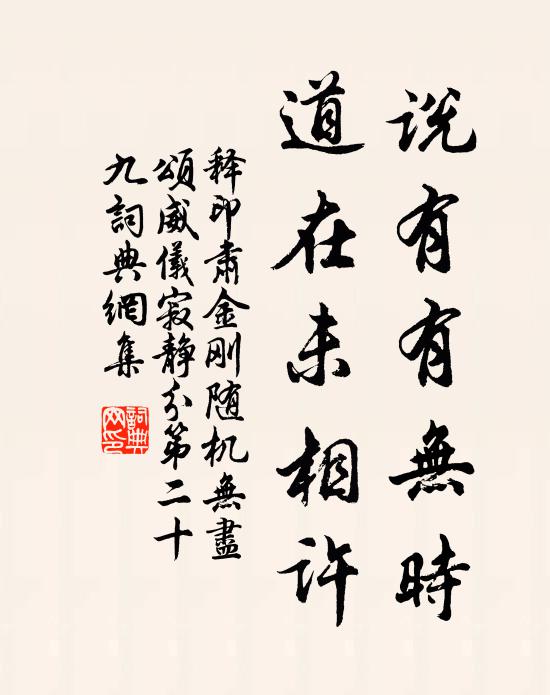 说有有無時
道在未相许
释印肃金刚随机無盡
頌威儀寂静分第二十
九詞典網集
詞典
网印